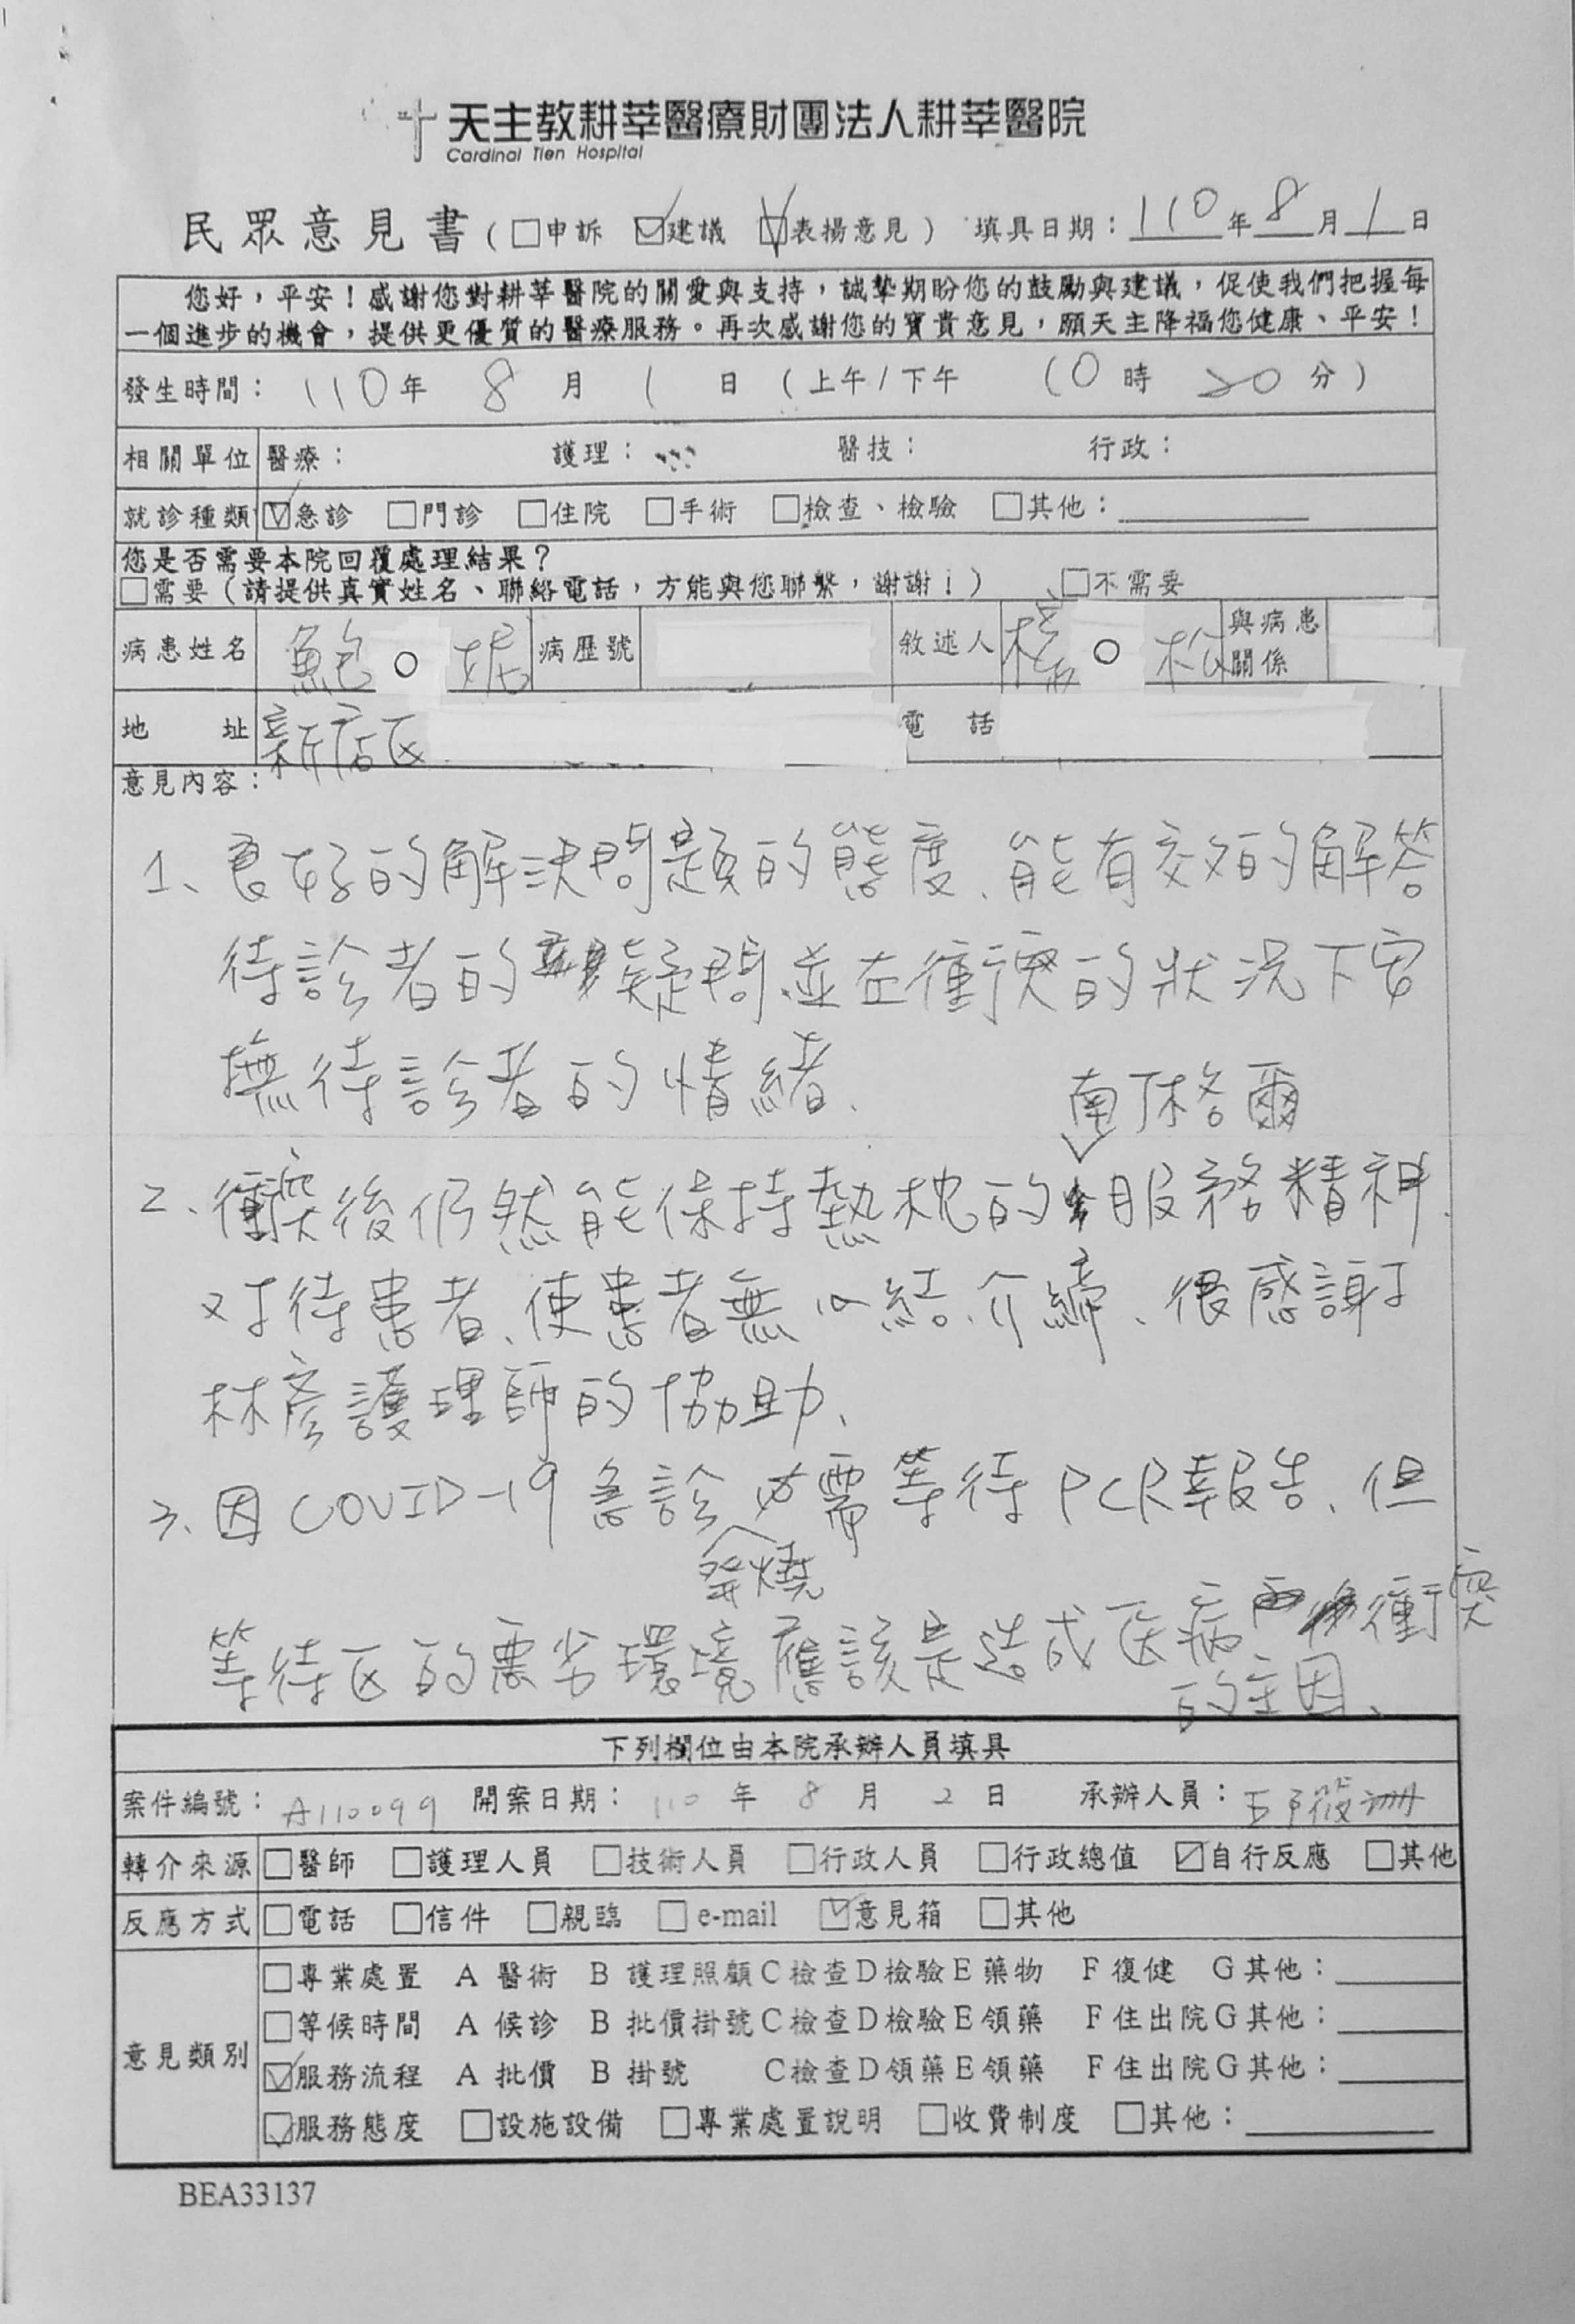 天主教耕莘醫療財團法人耕莘醫院
Cardinal Tien Hospital
民眾意見書(□申訴 ☑建議 ☑表揚意見) 填具日期：110年8月1日
您好，平安！感謝您對耕莘醫院的關愛與支持，誠摯期盼您的鼓勵與建議，促使我們把握每
一個進步的機會，提供更優質的醫療服務。再次感謝您的寶貴意見，願天主降福您健康、平安！
發生時間： 110年 8 月 1 日 (上午/下午 10時 20分)
相關單位 醫療： 護理： 醫技： 行政：
就診種類 ☑急診 □門診 □住院 □手術 □檢查、檢驗 □其他：
您是否需要本院回覆處理結果？
□需要(請提供真實姓名、聯絡電話，方能與您聯繫，謝謝！) □不需要
病患姓名 鮑○妮 病歷號 敘述人 楊○松 與病患關係
地址 新店区 電話
意見內容：
1、良好的解決問題的態度、能有效的解答
待診者的疑問、並在衝突的狀況下安
撫待診者的情緒、
南丁格爾
2、衝突後仍然能保持熱忱的服務精神、
对待患者、使患者無心結、介締、很感謝
林彥護理師的協助、
3、因COVID-19急診必需等待PCR報告、但
發燒
等待区的惡劣環境應該是造成医病衝突
的主因、
下列欄位由本院承辦人員填具
案件編號： A110099 開案日期： 110 年 8 月 2 日 承辦人員：
轉介來源 □醫師 □護理人員 □技術人員 □行政人員 □行政總值 ☑自行反應 □其他
反應方式 □電話 □信件 □親臨 □e-mail ☑意見箱 □其他
意見類別 □專業處置 A 醫術 B 護理照顧 C檢查 D檢驗 E藥物 F復健 G其他：
□等候時間 A 候診 B 批價掛號 C檢查 D檢驗 E領藥 F住出院 G其他：
☑服務流程 A 批價 B 掛號 C檢查 D領藥 E領藥 F住出院 G其他：
☑服務態度 □設施設備 □專業處置說明 □收費制度 □其他：
BEA33137